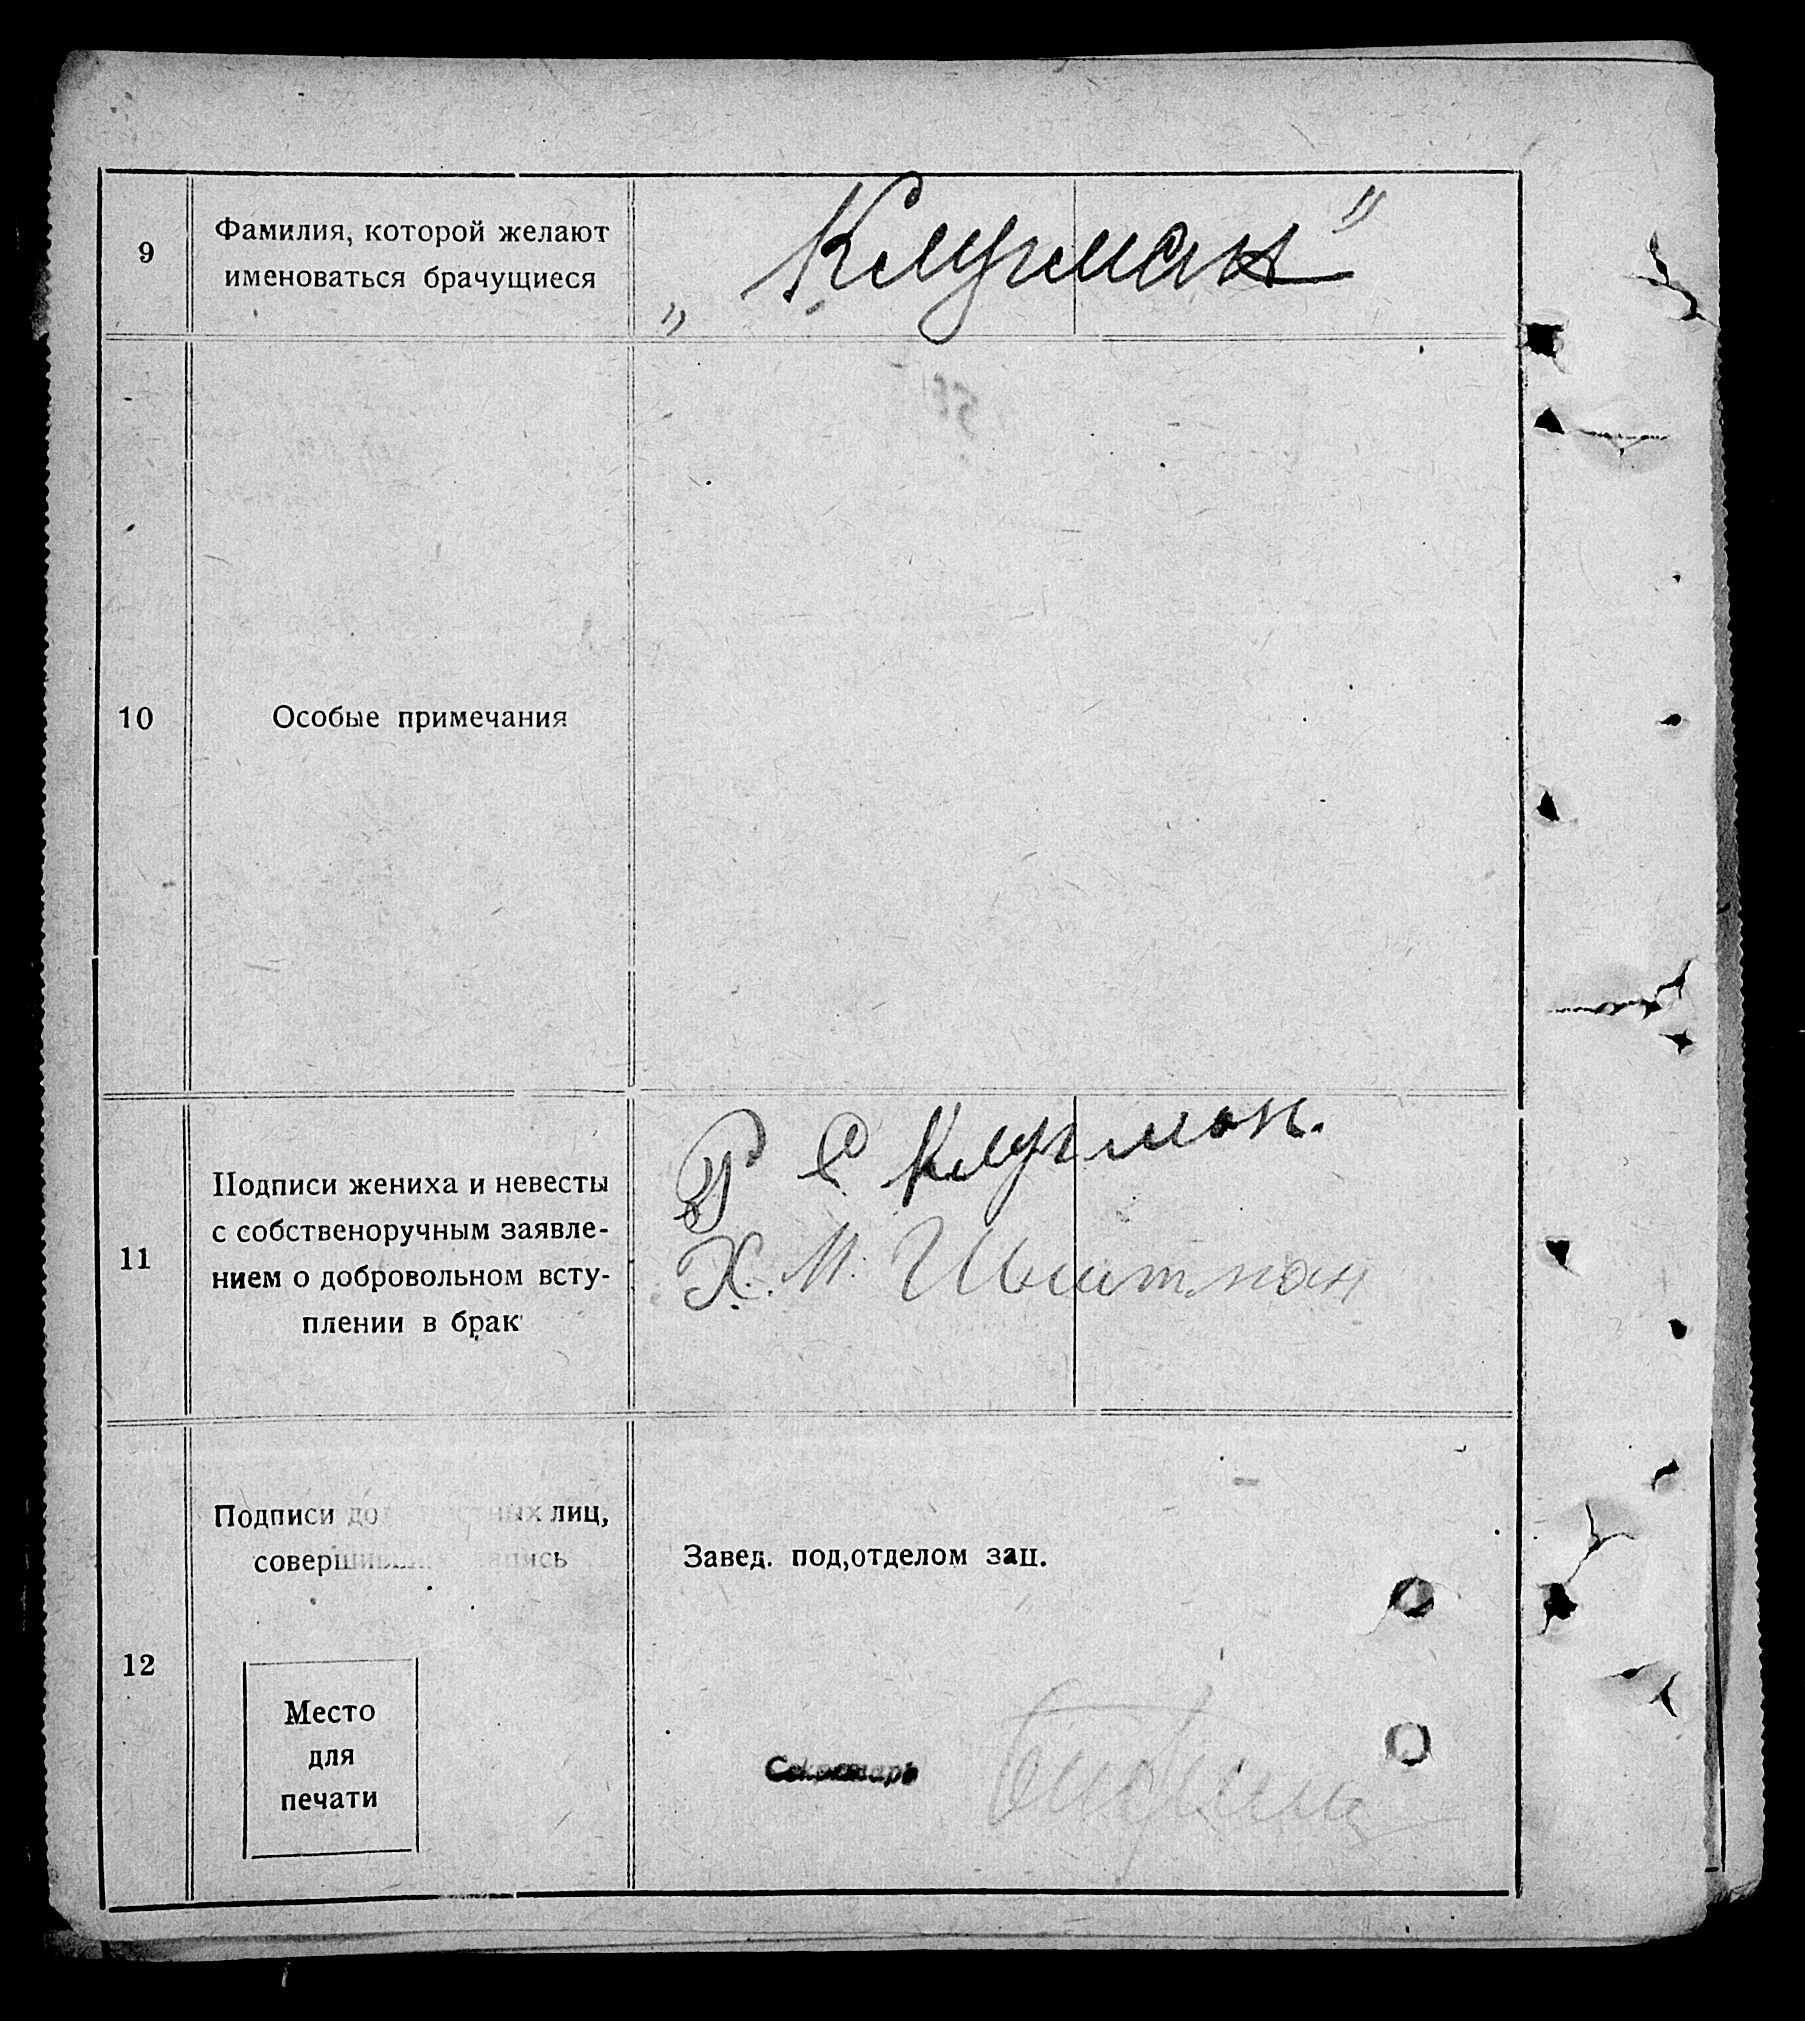 9
Фамилия, которой желают
именоваться брачущиеся
„ Клугман "
10
Особые примечания
11
Подписи жениха и невесты
с собственоручным заявле-
нием о добровольном всту-
плении в брак
Клугман.
Х. М.
12
Подписи лиц,
Завед. под,отделом зап.
Место
для
печати
Секретарь